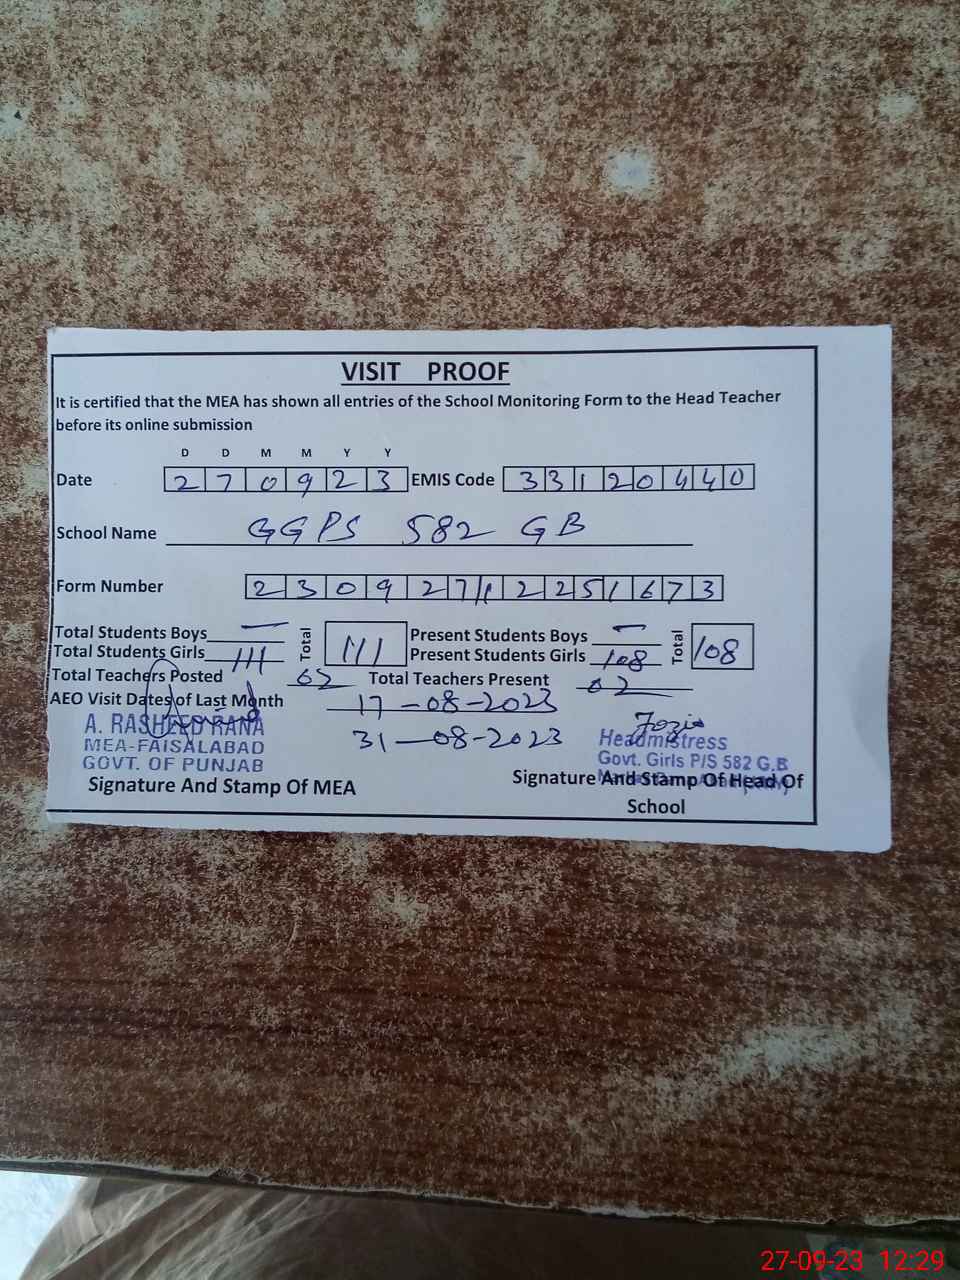 VISIT PROOF
It is certified that the MEA has shown all entries of the School Monitoring Form to the Head Teacher
before its online submission
D D M M Y Y
Date 2 7 0 9 2 3 EMIS Code 3 3 1 2 0 4 4 0
School Name GGPS 582 GB
Form Number 2 3 0 9 2 7 1 2 2 5 1 6 7 3
Total Students Boys — Total 111 Present Students Boys — Total 108
Total Students Girls 111 Present Students Girls 108
Total Teachers Posted 02 Total Teachers Present 02
AEO Visit Dates of Last Month 17-08-2023
31-08-2023
A. RASHEED RANA
MEA-FAISALABAD
GOVT. OF PUNJAB
Signature And Stamp Of MEA
Fozia
Headmistress
Govt. Girls P/S 582 G.B
Signature And Stamp Of Head Of
School
27-09-23 12:29